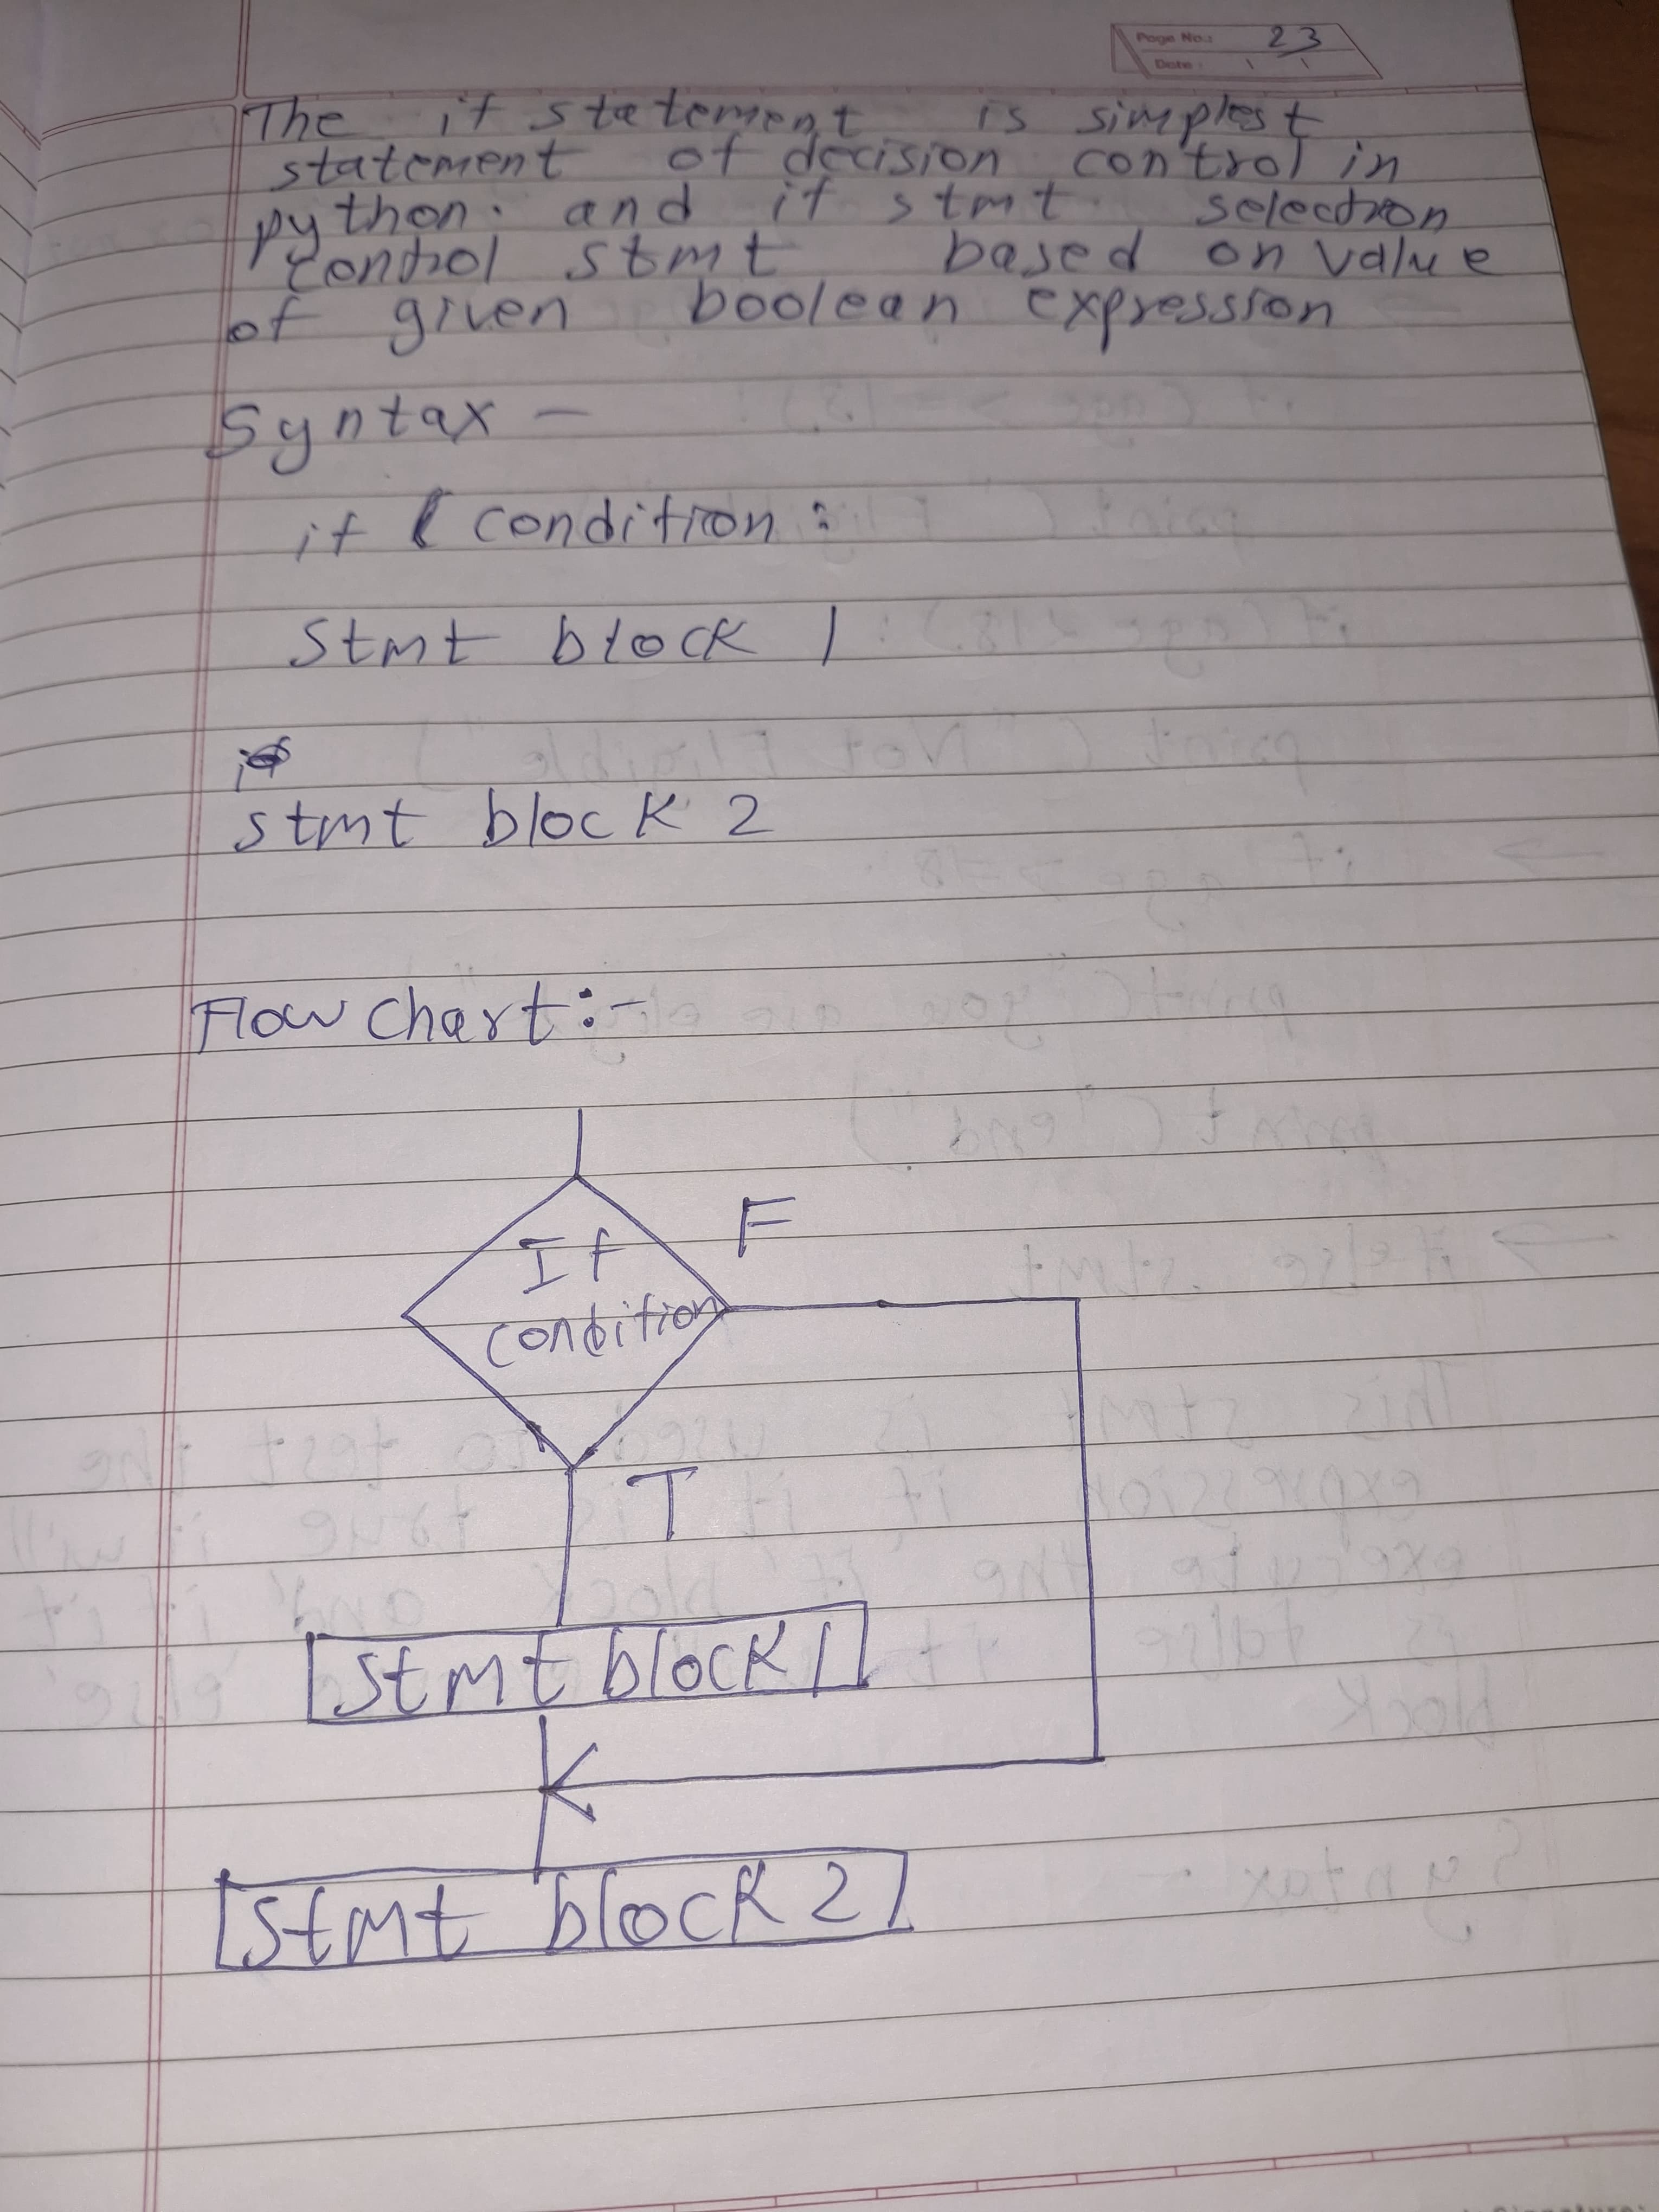 Page No.: 23
Date:
The if statement is simplest
statement of decision control in
python. and if stmt selection
control stmt based on value
of given boolean expression
Syntax -
if ( condition :
Stmt block 1
stmt block 2
Flow chart :-
If
condition
F
T
Stmt block 1
Stmt block 2